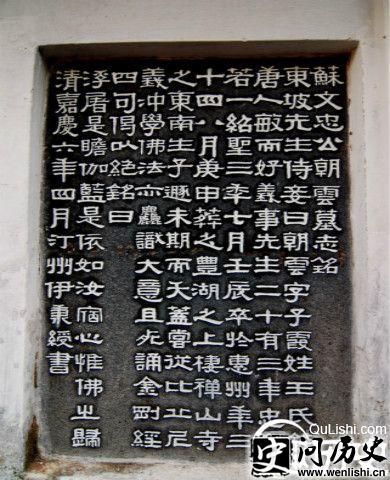 蘇文忠公朝雲墓志銘
東坡先生侍妾曰朝雲字子霞姓王氏
唐人敏而好義事先生二十有三年忠
若一紹聖三年七月壬辰卒於惠州年三
十四八月庚申葬之豐湖之上棲禪山寺
之東南生子遯未期而夭蓋嘗從比丘尼
義沖學佛法亦麤識大意且死誦金剛經
四句偈以絕銘曰
浮屠是瞻伽藍是依如汝宿心惟佛之歸
清嘉慶六年四月汀州伊秉綬書
QuLishi.com
问历史
www.wenlishi.cn